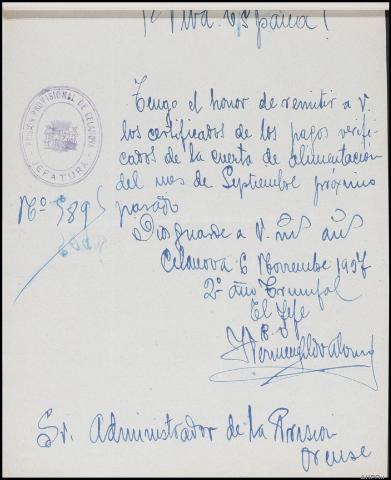 ¡Viva España!
PRISION PROVISIONAL DE CELANOVA
JEFATURA
Tengo el honor de remitir a V.
los certificados de los pagos verifi-
cados de la cuenta de alimentación
del mes de Septiembre próximo
pasado
Nº 589
Dios guarde a V. ms. as.
Celanova 6 Noviembre 1937
2º año Triunfal
El Jefe
Hermenegildo Alonso
Sr. Administrador de la Prision
Orense